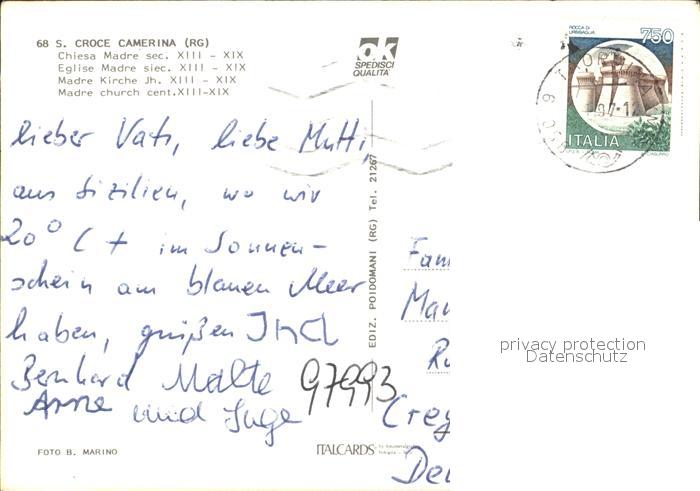 68 S. CROCE CAMERINA (RG)
Chiesa Madre sec. XIII - XIX
Eglise Madre siec. XIII - XIX
Madre Kirche Jh. XIII - XIX
Madre church cent.XIII-XIX
ok
SPEDISCI
QUALITA'
ROCCA DI
URBISAGLIA
750
ITALIA
lieber Vati, liebe Mutti,
aus Sizilien, wo wir
20° C + im Sonnen-
schein am blauen Meer
haben, grüßen
Bernhard Malte
Anne und Inge
97993
EDIZ. POIDOMANI (RG) Tel. 21267
Fam
Ma
Creg
privacy protection
Datenschutz
FOTO B. MARINO
ITALCARDS